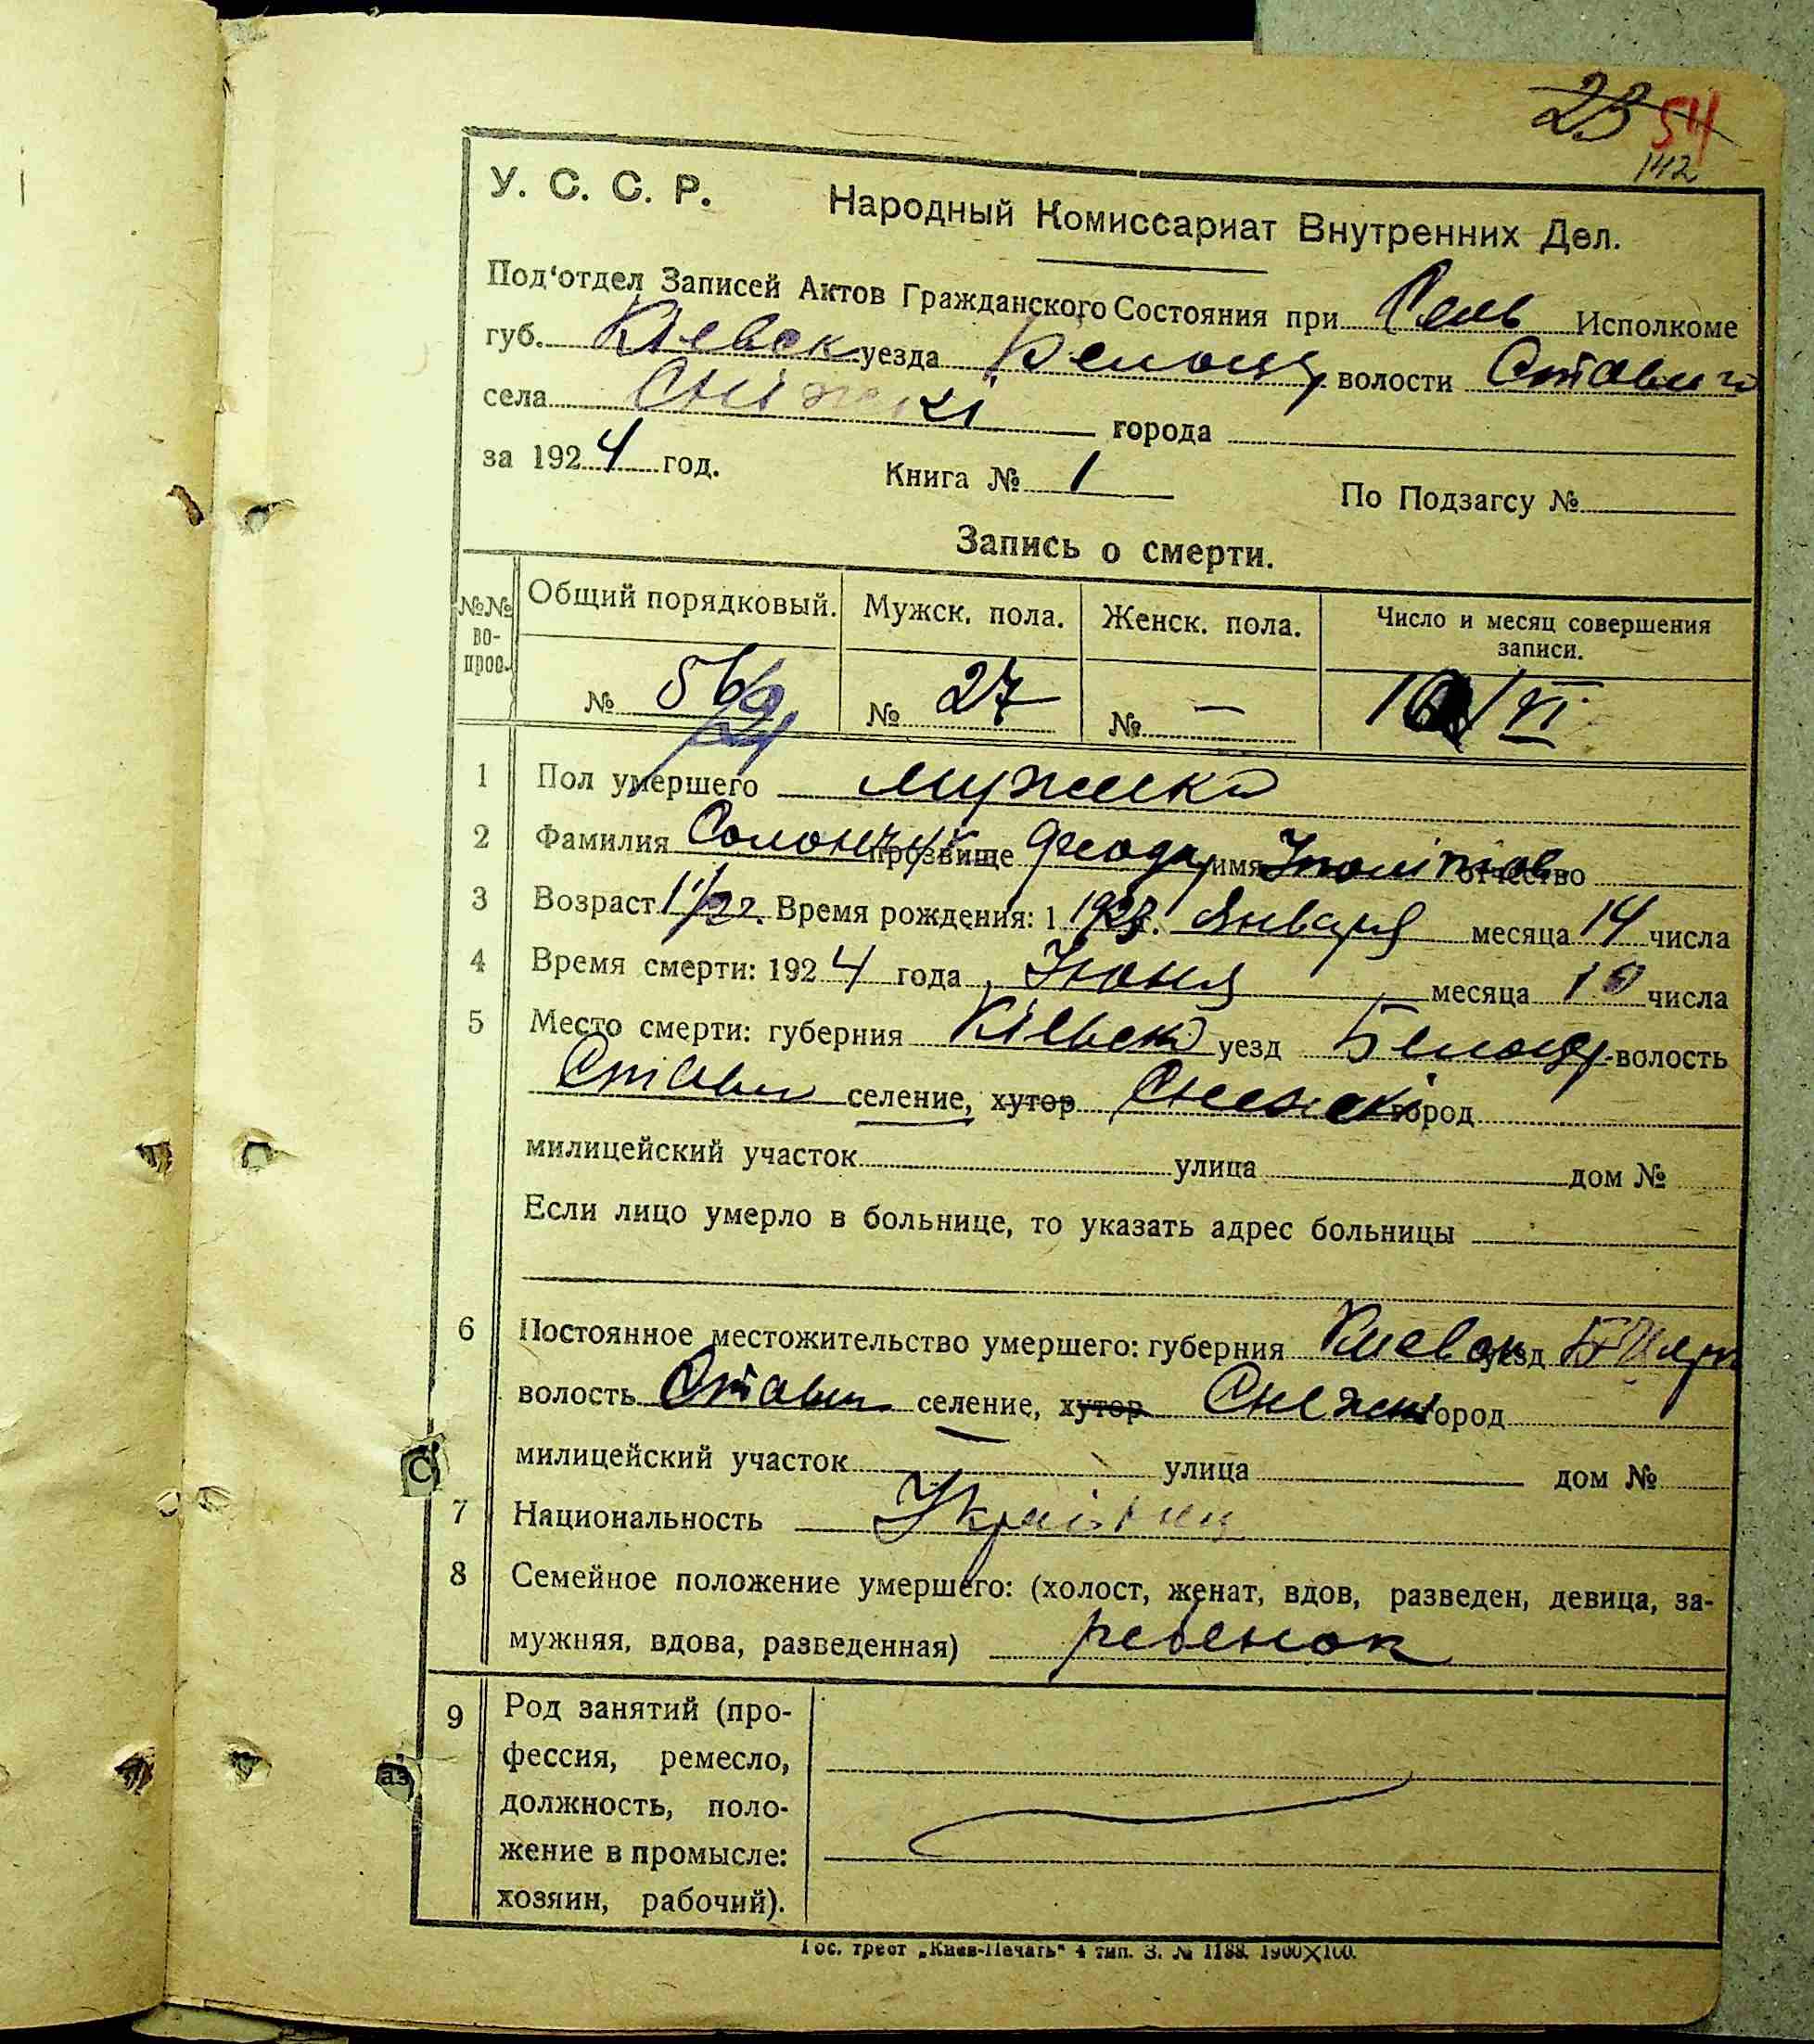 23 54
142
У. С. С. Р. Народный Комиссариат Внутренних Дел.
Под'отдел Записей Актов Гражданского Состояния при Сель Исполкоме
губ. Кіевск уезда Белоцер волости Ставищ
села Сніжкі города
за 1924 год. Книга № 1 По Подзагсу №
Запись о смерти.
№№ во-прос. Общий порядковый. Мужск. пола. Женск. пола. Число и месяц совершения записи.
№ 56 № 27 № — /VI
1 Пол умершего мужско
2 Фамилия Солончук прозвище Феодор имя отчество
3 Возраст 1 1/2 г. Время рождения: 1 1923 г. Января месяца 14 числа
4 Время смерти: 1924 года Июня месяца 10 числа
5 Место смерти: губерния Кіевско уезд Белоцер волость
Стави селение, хутор Снежкі город
милицейский участок улица дом №
Если лицо умерло в больнице, то указать адрес больницы
6 Постоянное местожительство умершего: губерния Киевск уезд Б Церк
волость Стави селение, хутор Снежки город
милицейский участок улица дом №
7 Национальность Украінец
8 Семейное положение умершего: (холост, женат, вдов, разведен, девица, за-
мужняя, вдова, разведенная) ребенок
9 Род занятий (про-
фессия, ремесло,
должность, поло-
жение в промысле:
хозяин, рабочий).
Гос. трест „Киев-Печать“ 4 тип. З. № 1188. 1900×100.